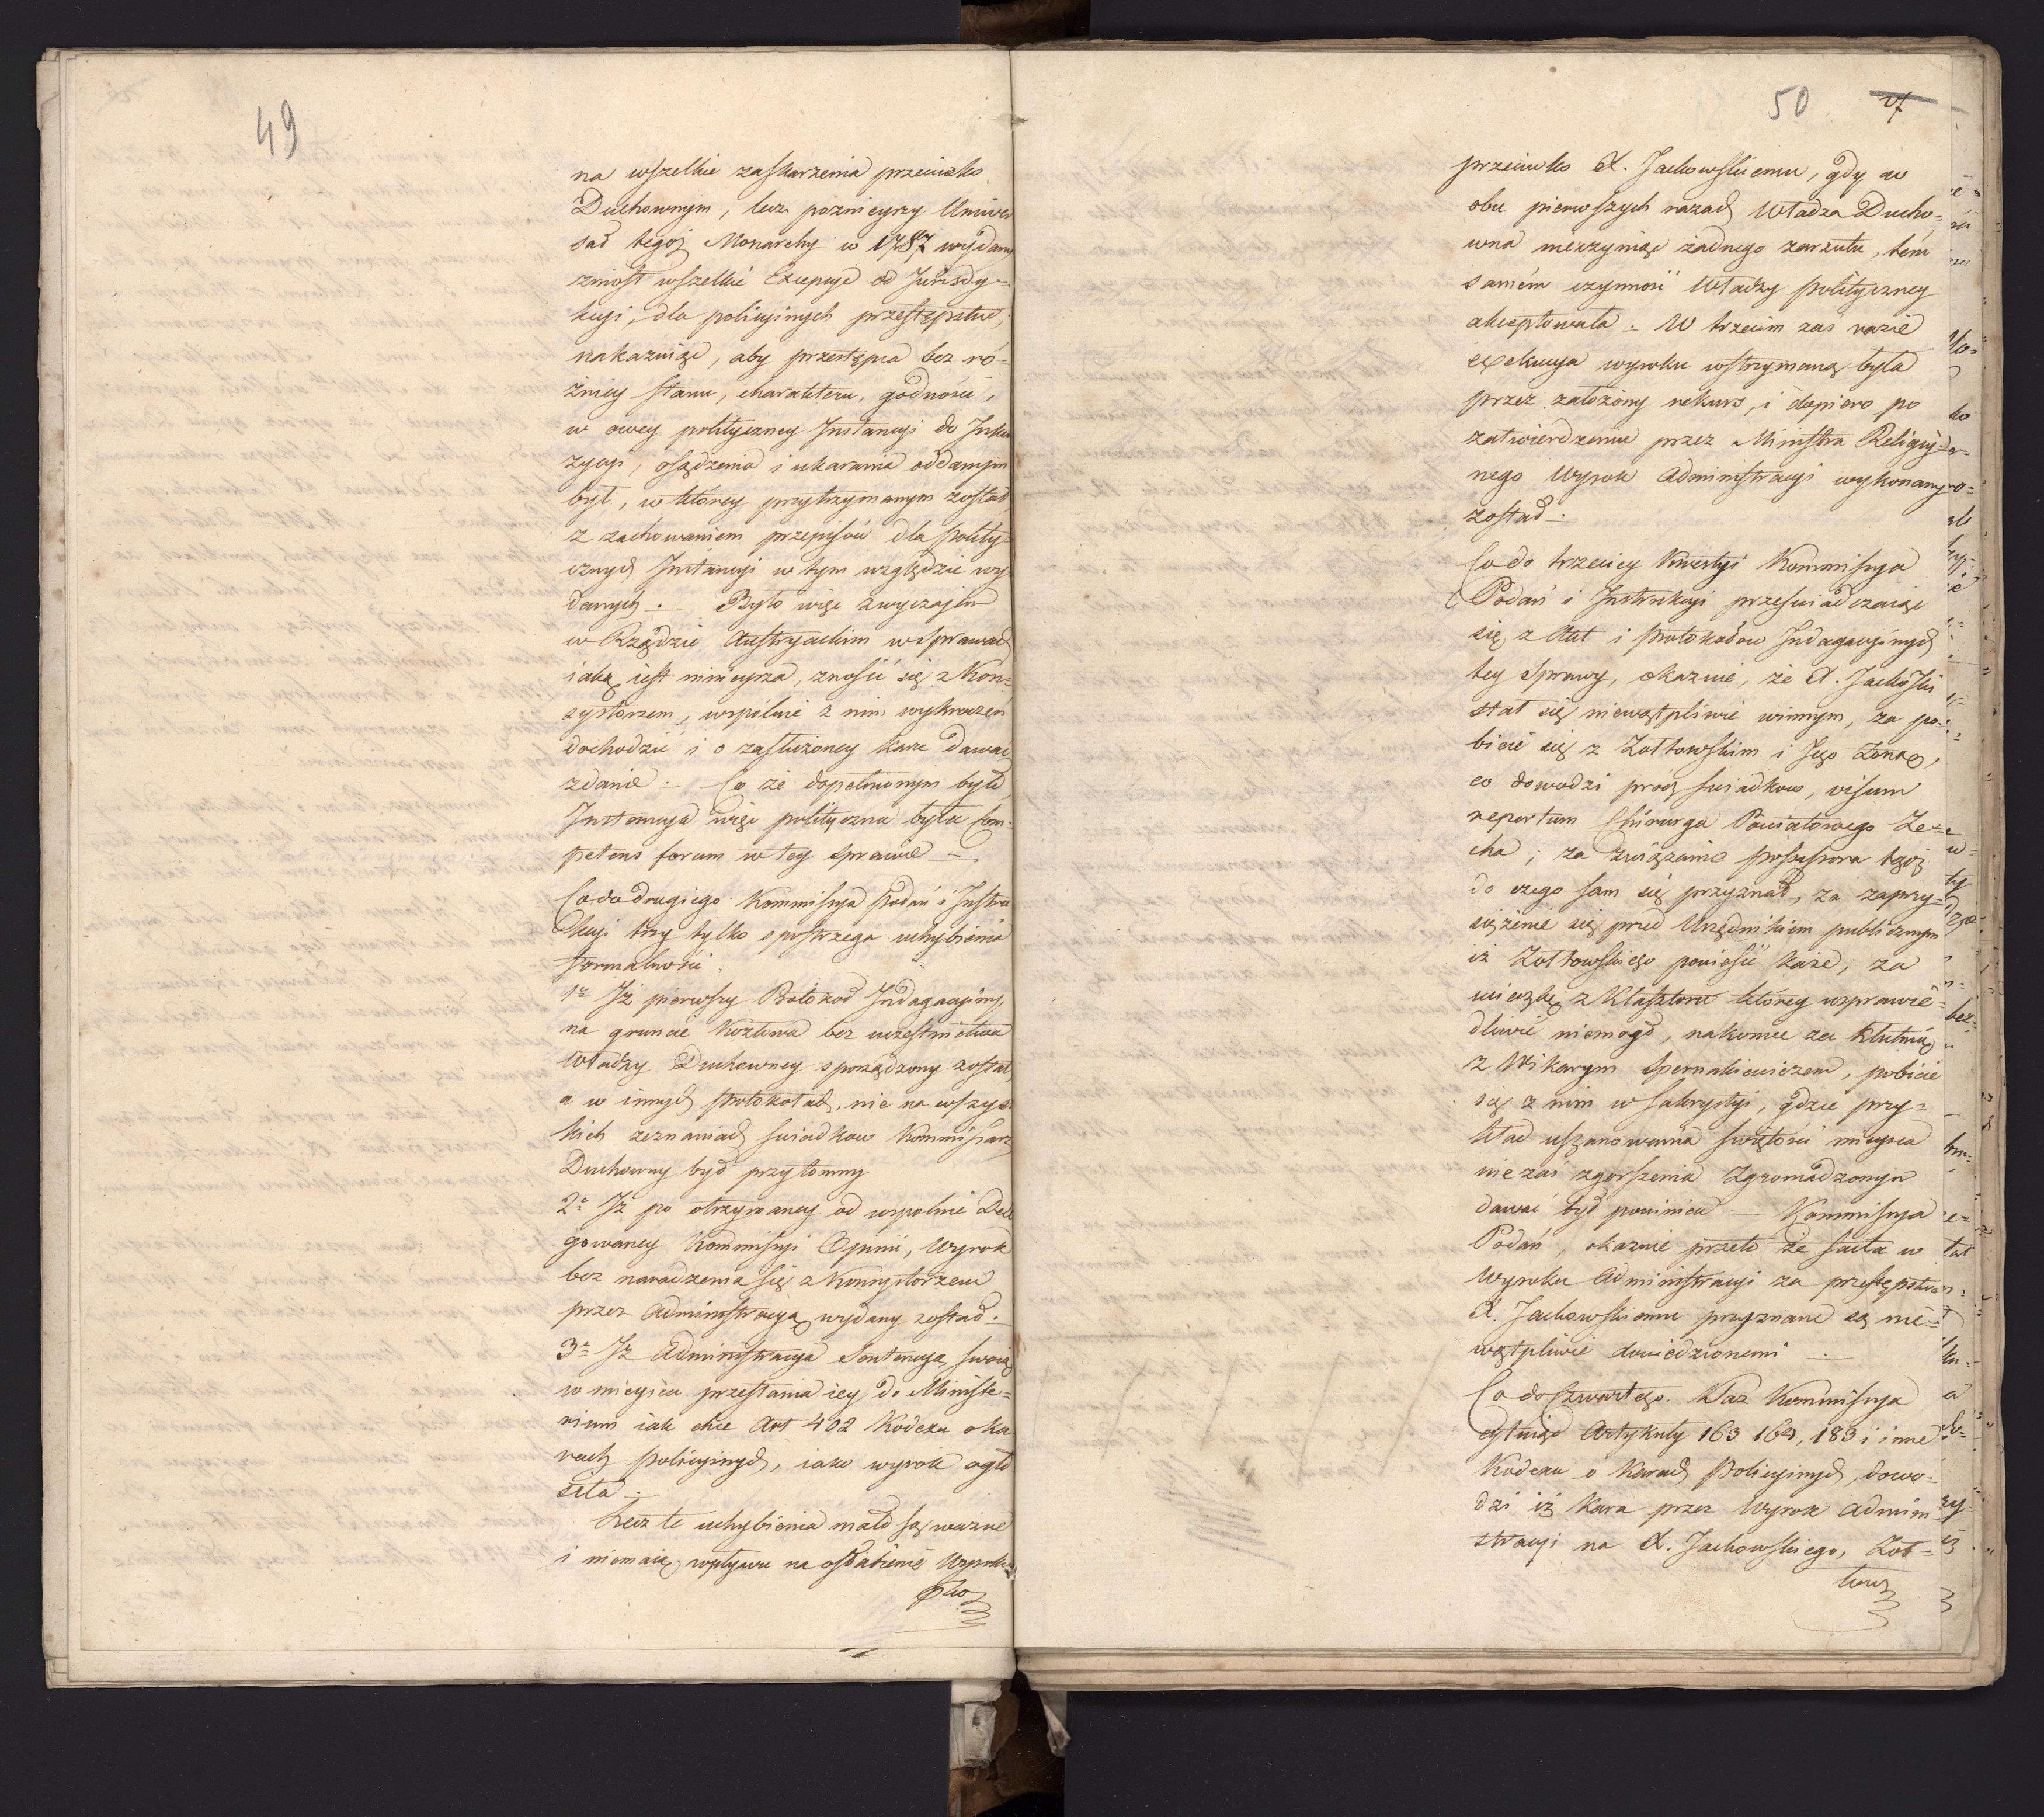 49
na wszelkie zaskarzenia przeciwko
Duchownym, lecz pozniejszy Uniwer
sał tegoż Monarchy w 1787 wydany
zniosł wszelkie Excepcye od Jurisdy=
kcyi, dla policyjnych przestępstw,
nakazuiąc, aby przestępca bez ró=
żnicy stanu, charakteru, godności,
w owey polityczney Instancyi do Inkwi
zycyi, osądzenia i ukarania oddanym
był, w którey przytrzymanym został
z zachowaniem przepisów dla polity=
cznych Instancyi w tym względzie wy=
danych. Było więc zwyczajem
w Rządzie Austryackim w sprawach
iaką iest ninieysza, znosić się z Kon=
systorzem, wspólnie z nim wykroczeń
dochodzić i o zasłużoney karze dawać
zdanie. Co że dopełnionym było,
Instancya więc polityczna była Com=
petens forum w tey sprawie
Co do drugiego. Kommissya Podań i Instru
kcyi trzy tylko spostrzega uchybienia
formalności.
1º Iż pierwszy Protokoł Indagacyiny
na gruncie Kozlowa bez uczestnictwa
Władzy Duchowney sporządzony został,
a w innych protokołach, nie na wszyst
kich zeznaniach swiadkow Kommissarz
Duchowny był przytomny
2º Iż po otrzymaney od wspolnie Dele
gowaney Kommissyi Opinii, Wyrok
bez naradzenia się z Konsystorzem
przez Administracyą wydany został.
3º Iż Administracya Sentencyą swoią
w mieyscu przesłania iey do Ministe=
rium iak chce Art 402 Kodexu o ka
rach policyinych, iako wyrok ogło
siła.
Lecz te uchybienia mało są ważne
i niemaią wpływu na osłabienie Wyroku
prze
50
przeciwko X. Jackowskiemu, gdy w
obu pierwszych razach Władza Ducho=
wna nieczyniąc żadnego zarzutu, tém
samém czynność Władzy polityczney
akceptowała. W trzecim zaś razie
exekucya wyroku wstrzymaną była
przez założony rekurs, i dopiero po
zatwierdzeniu przez Ministra Religiy=
nego Wyrok Administracyi wykonany
został.
Co do trzeciey Kwestyi Kommissya
Podań i Instrukcyi przeswiadczaiąc
się z Akt i protokołow Indagacyinych
tey Sprawy, okazuie, że X. Jackowski
stał się niewątpliwie winnym, za po=
bicie się z Zołtowskim i Jego Zoną,
co dowodzi procz swiadkow, visum
repertum Chirurga Powiatowego Ze=
cha; za związanie possessora tegoż
do czego sam się przyznał, za zaprzy=
siężenie się przed Urzędnikiem publicznym
iż Zołtowskiego powiesić każe; za
ucieczkę z Klasztoru którey usprawie=
dliwić niemogł, nakoniec za kłutnią
z Wikarym Spernakiewiczem, pobicie
się z nim w Sakrystyi, gdzie przy=
kład uszanowania świętości mieysca
nie zaś zgorszenia Zgromadzonym
dawać był powinien — Kommissya
Podań, okazuie przeto że facta w
Wyroku Administracyi za przestępstwa
X. Jackowskiemu przyznane są nie=
wątpliwie dowiedzionemi
Co do Czwartego. Taz Kommissya
cytuiąc Artykuły 163 164, 183 i inne
Kodexu o Karach Policyinych, dowo=
dzi iż kara przez Wyrok Admini
stracyi na X. Jackowskiego, Zoł=
tow